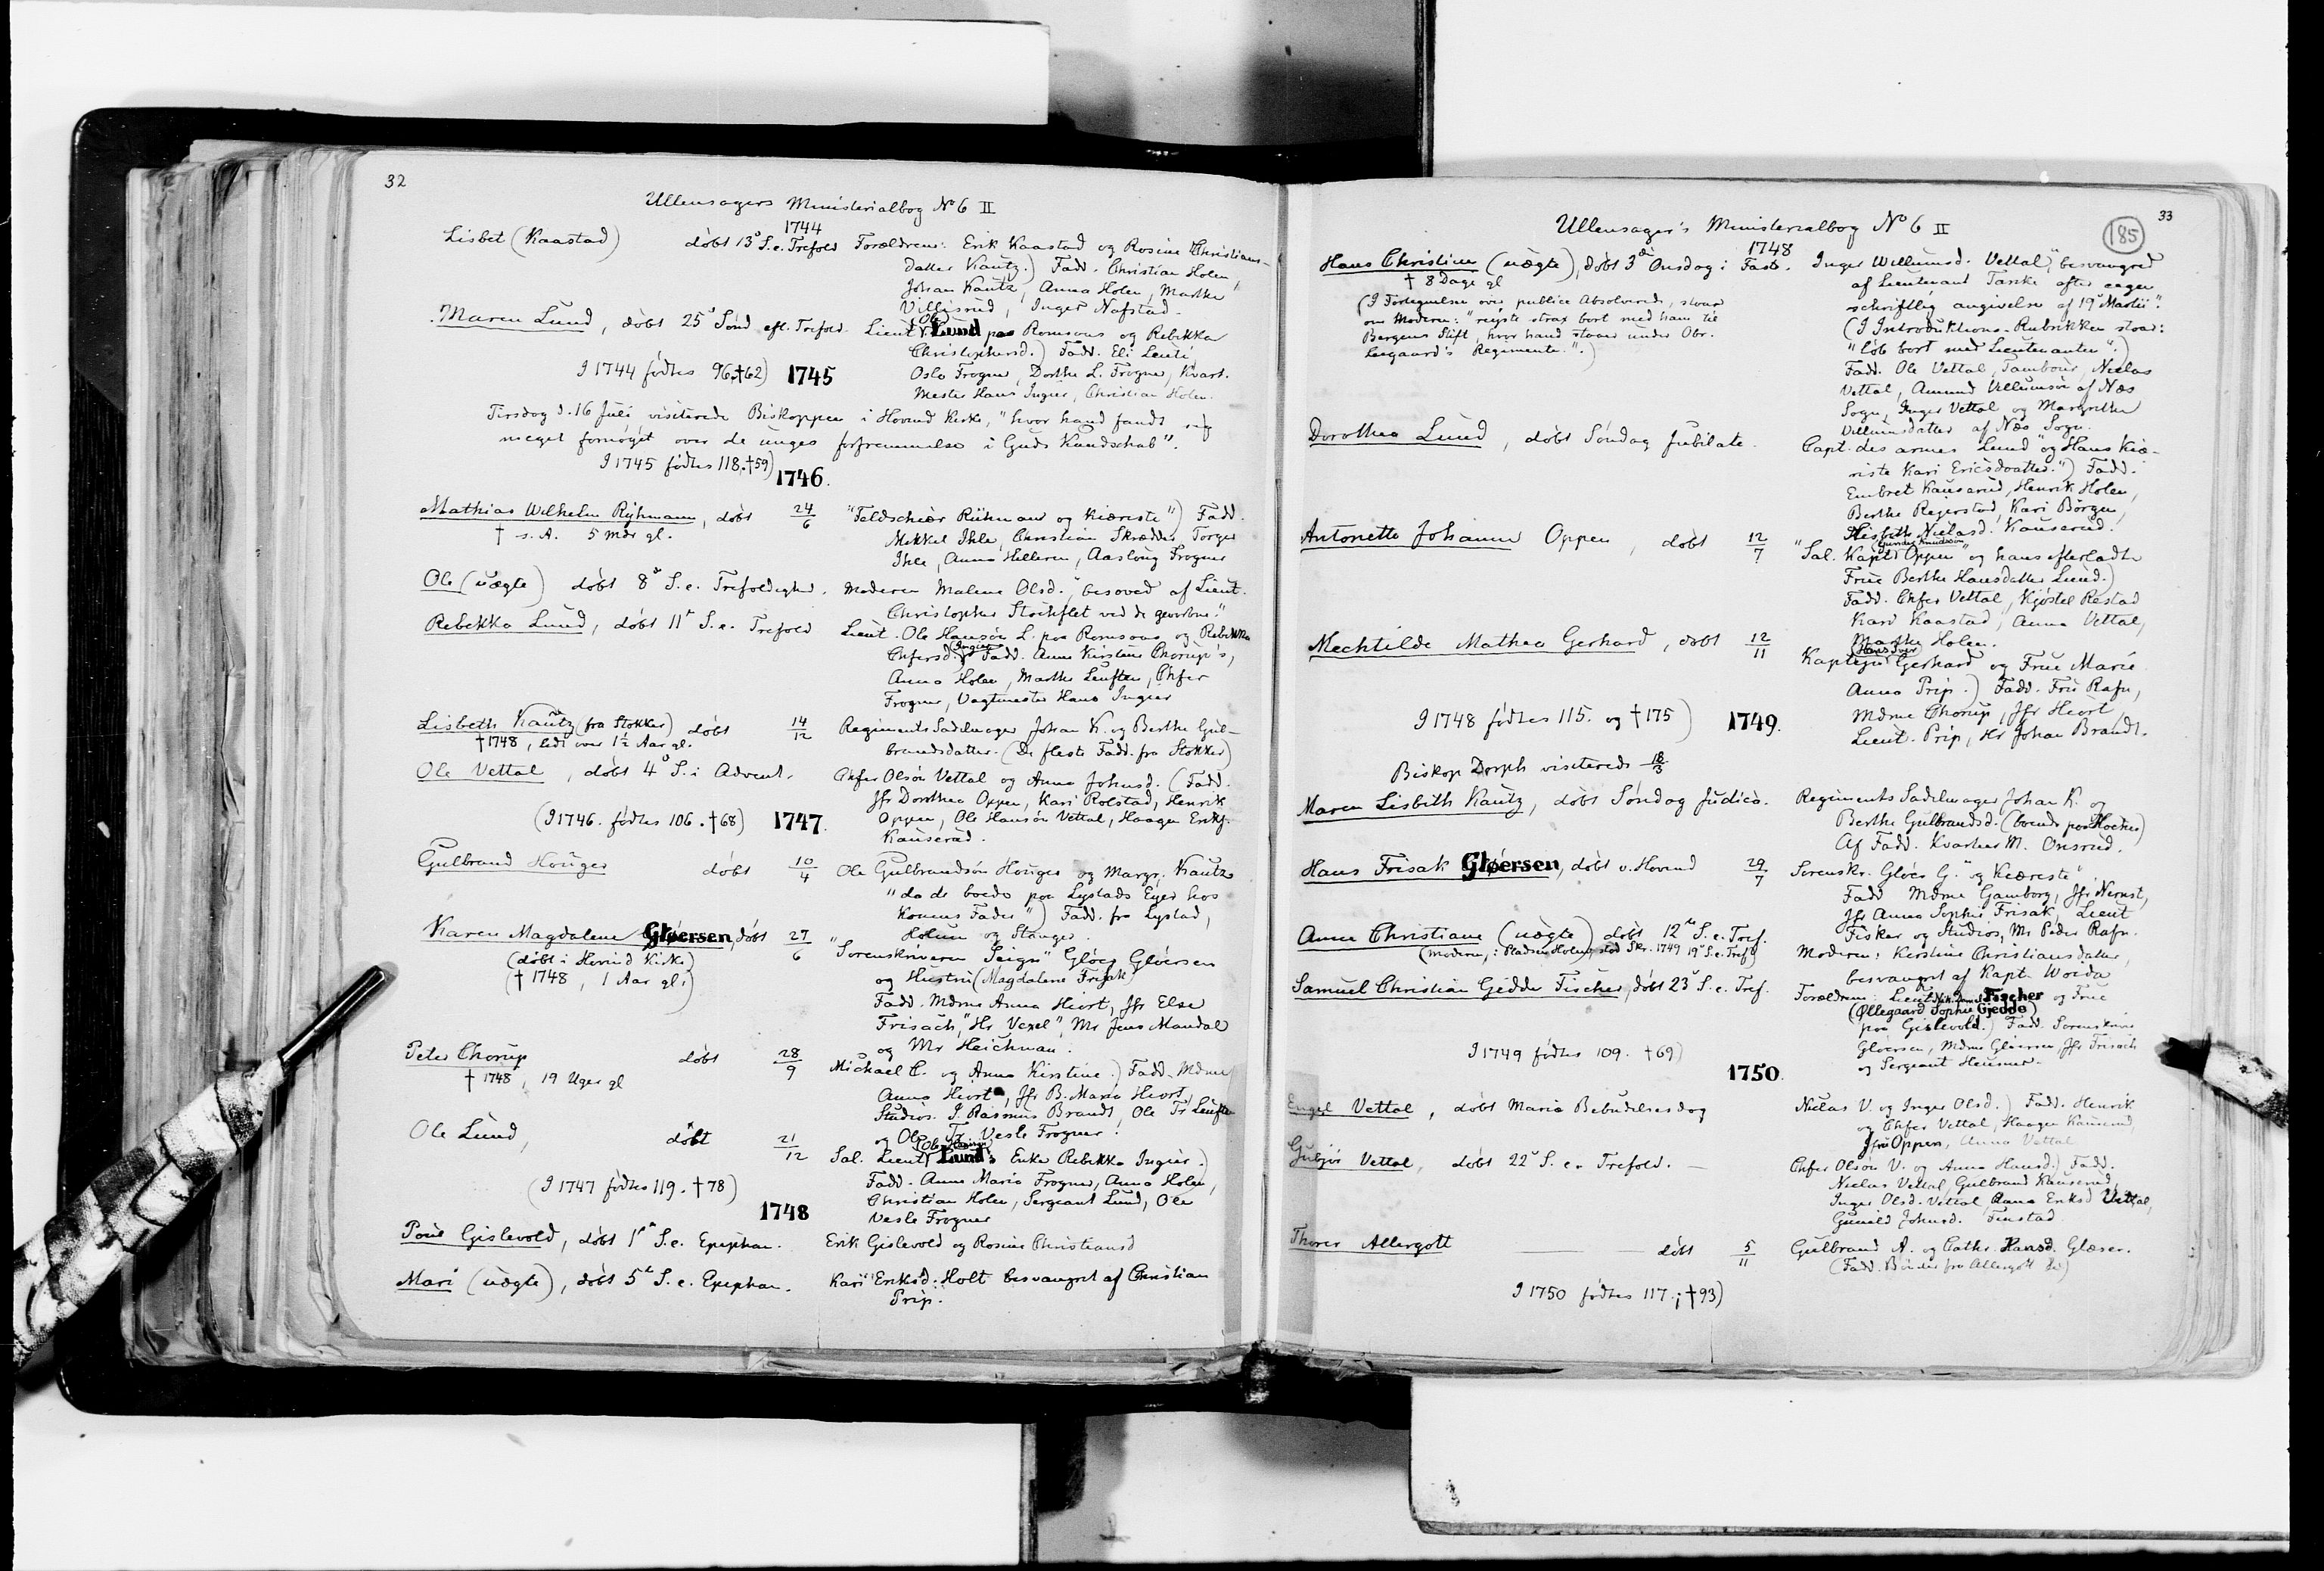 32
Ullensagers Ministerialbog No 6 II
1744
Lisbet (Kaastad) døbt 13de S. e. Trefold Forældrene: Erik Kaastad og Rosine Christians-
datter Kautz.) Fadd. Christian Holen
Johan Kautz, Anna Holen, Marthe
Villisrud, Inger Nafstad.
Maren Lund, døbt 25de Sønd eft. Trefold. Lieut (Ole) Lund paa Romsaas og Rebekka
Christophersd.) Fadd. Eli
I 1744 fødtes 96. †62) 1745 Oslo Frogner, Dorthe L. Frogner, Kvart.
Mester Hans Ingier, Christian Holen.
Tirsdag d. 16 Juli visiterede Biskoppen i Hovind Kirke, "hvor hand fandt sig
meget fornøyet over de unges forfremmelse i Guds Kundschab".
I 1745 fødtes 118. †59)
1746.
Mathias Wilhelm Ryhmann, døbt 24/6 "Feldschiær Rühmann og Kiæreste") Fadd.
† s. A. 5 Mdr gl. Mikkel Ihle, Christian Skrædder, Torger
Ihle, Anna Hilleren, Aaslaug Frogner
Ole (uægte) døbt 8de S. e. Trefoldighed. Moderen Malene Olsd., "besoved af Lieut.
Christopher Stockflet ved de gevorbne."
Rebekka Lund, døbt 11te S. e. Trefold Lieut. Ole Hansøn L. paa Romsaas og Rebekka
Chfersd. (Ingier) Fadd. Anne Kirstine Chorup's,
Anna Holen, Marthe Leuften, Chfer
Frogner, Vagtmester Hans Ingier
Lisbeth Kautz (fra Stokker) døbt 14/12 Regiments Sadelmager Johan K. og Berthe Gul-
†1748, lidt over 1½ Aar gl. brandsdatter. (De fleste Fadd. fra Stokker)
Ole Vettal, døbt 4de S. i Advent. Chfer Olsøn Vettal og Anna Johnsd. (Fadd.
Jfr Dorothea Oppen, Kari Rolstad, Henrik
(I 1746. fødtes 106. †68) 1747. Oppen, Ole Hansøn Vettal, Haagen Eriks.
Kauserud.
Gulbrand Houger døbt 10/4 Ole Gulbrandsøn Houger og Margr. Kautz
"da de boede paa Lystads Eyer hos
Konens Fader") Fadd. fra Lystad,
Holum og Stanger.
Karen Magdalene Gløersen, døbt 27/6 "Sorenskriveren Seign" Gløer Gløersen
(døbt i Hovind Kirke) og Hustru (Magdalene Frisak)
(† 1748, 1 Aar gl.) Fadd. Mdme Anna Hiort, Jfr Else
Frisach, "Hr Vexel", Mr Jens Mandal
og Mr Heichman.
Peter Chorup døbt 28/9 Michael C. og Anna Kirstine.) Fadd. Mdme
† 1748, 19 Uger gl Anna Hiort, Jfr B. Maria Hiort,
Studios. J. Rasmus Brandt, Ole Tr Leuften
og Ole Tr. Vesle Frogner.
Ole Lund, døbt 21/12 Sal. Lieut (Ole Hansøn) Lund's Enke Rebekka Ingier.)
Fadd. Anne Maria Frogner, Anna Holen,
(I 1747 fødtes 119. †78) Christian Holen, Sergeant Lund, Ole
1748 Vesle Frogner
Poul Gislevold, døbt 1te S. e. Epiphan. Erik Gislevold og Rosine Christiansd
Mari (uægte), døbt 5te S. e. Epiphan. Kari Eriksd: Holt besvangret af Christian
Prip.
33
185
Ullensager's Ministerialbog No 6 II
1748
Hans Christian (uægte), døbt 3die Onsdag i Faste. Inger Willumsd. Vettal, "besvangred
† 8 Dage gl af Lieutenant Tanke efter eegen
(I Fortegnelsen over publice Absolverede, staar schriftlig angivelse af 19 Martii".
om Moderen: "reyste strax bort med ham til (I Introduktions-Rubrikken staar:
Bergens Stift, hvor hand staaer under Obr. "løb bort med Lieutenanten".)
leegaard's Regimente.".) Fadd. Ole Vettal, Tambour, Niclas
Vettal, Amund Villumsøn af Næs
Sogn, Inger Vettal og Margrethe
Villumsdatter af Næs Sogn.
Dorothea Lund, døbt Søndag Jubilate. Capt. des armes "Lund og Hans Kiæ-
riste Kari Ericsdaatter.") Fadd.
Embret Kauserud, Henrik Holen,
Berthe Rejerstad, Kari Børgen,
Lisbeth Nielasd. Kauserud.
Antonette Johanne Oppen, døbt 12/7 "Sal. Kapt. (Gunder Knudssøn) Oppen" og hans efterladte
Frue Berthe Hansdatter Lund.)
Fadd. Chfer Vettal, Kjøstel Restad
Kari Kaastad, Anna Vettal,
Marthe Holen.
Mechtilde Mathea Gerhard, døbt 12/11 Kaptejn (Hans Iver) Gerhard og Frue Marie
Anna Prip.) Fadd. Fru Rafn,
I 1748 fødtes 115. og †175) 1749. Mdme Chorup, Jfr Hiort,
Lieut. Prip, Hr Johan Brandt.
Biskop Dorph visiterede 18/3
Maren Lisbeth Kautz, døbt Søndag Judica. Regiments Sadelmager Johan K. og
Berthe Gulbrandsd. (boende paa Stocker)
Af Fadd. Kvarter M. Onsrud.
Hans Frisak Gløersen, døbt v. Hovind 29/7 Sorenskr. Gløer G. "og Kiæreste".
Fadd Mdme Gamborg, Jfr Nernst,
Jfr Anna Sophie Frisak, Lieut
Fisker og Studios, Mr Peder Rafn.
Anne Christiane (uægte) døbt 12te S. e. Tref. Moderen: Kirstine Christiansdatter,
(Moderen,: Pladsen Holen, stod Skr. 1749 19de S. e. Tref) besvangret af Kapt. Woida
Samuel Christian Gedde Fischer, døbt 23de S. e. Tref. Forældrene: Lieut. Fischer og Frue
(Øllegaard Sophie Gjedde)
paa Gislevold.) Fadd. Sorenskriver
I 1749 fødtes 109. †69) Gløersen, Mdme Gløersen, Jfr Frisach
og Sergeant Heusner.
1750.
Engel Vettal, døbt Mariæ Bebudelsesdag Niclas V. og Inger Olsd.) Fadd. Henrik
og Chfer Vettal, Haagen Kauserud,
Jfru Oppen, Anna Vettal
Gubjør Vettal, døbt 22de S. e. Trefold. Chfer Olsøn V. og Anna Hansd.) Fadd.
Niclas Vettal, Gulbrand Kauserud,
Inger Olsd. Vettal, Anna Eriksd Vettal,
Gunild Johnsd. Finstad
Thorer Allergott døbt 5/11 Gulbrand A. og Cathr. Hansd. Glæser.
(Fadd. Bønder fra Allergott )
I 1750 fødtes 117.; †93)